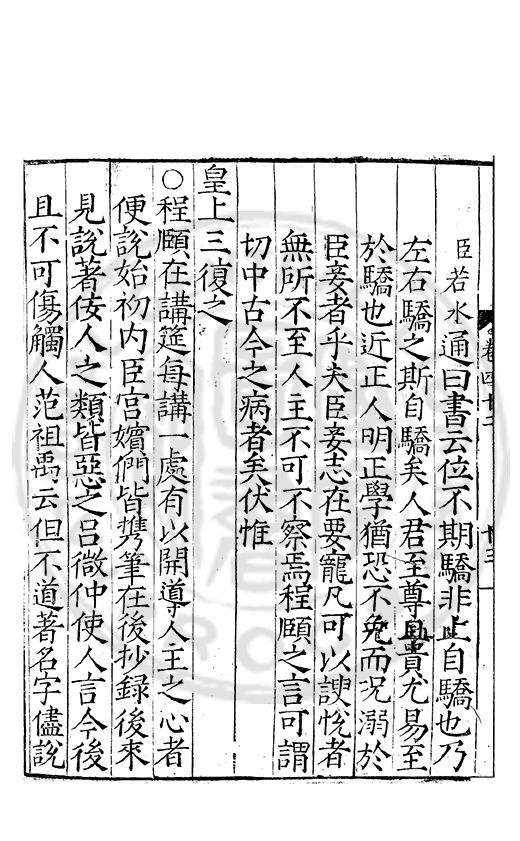 臣若水通曰書云位不期驕非上自驕也乃
左右驕之斯自驕矣人君至尊與貴尤易至
於驕也近正人明正學猶恐不免而況溺於
臣妾者乎夫臣妾志在要寵凡可以諛悅者
無所不至人主不可不察焉程頤之言可謂
切中古今之病者矣伏惟
皇上三復之
○程頤在講筵每講一處有以開導人主之心者
便說始初內臣宮嬪們皆㩦筆在後抄録後來
見說著佞人之類皆惡之呂微仲使人言今後
且不可傷觸人范祖禹云但不道著名字儘說
卷四十二
十三